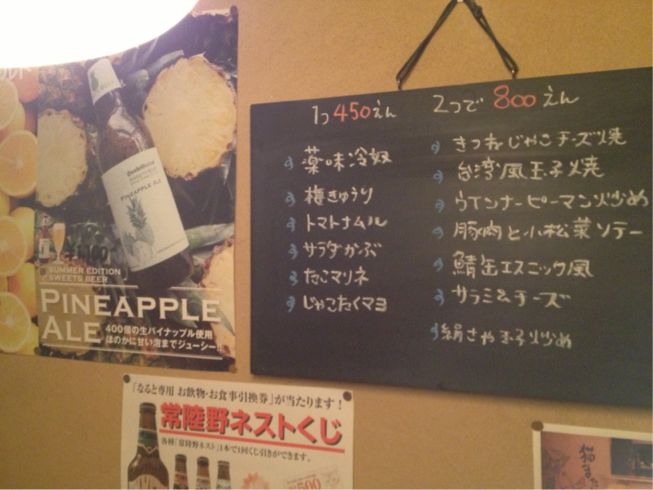 PINEAPPLE ALE
SUMMER EDITION
SWEETS BEER
PINEAPPLE
ALE
400個の生パイナップル使用
ほのかに甘い泡までジューシー!!
1つ450えん 2つで800えん
薬味冷奴
梅きゅうり
トマトナムル
サラダかぶ
たこマリネ
じゃこたくマヨ
きつねじゃこチーズ焼
台湾風玉子焼
ウインナーピーマン炒め
豚肉と小松菜ソテー
鯖缶エスニック風
サラミ&チーズ
絹さや玉子炒め
「なると専用 お飲物・お食事引換券」が当たります!
常陸野ネストくじ
各種「常陸野ネスト」1本で1回くじ引きができます。
500
猫また